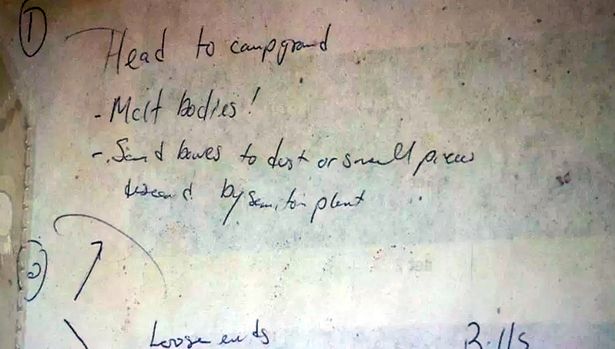 ①
Head to campground
- Melt bodies!
- Sand bones to dust or small pieces
discard by sanitation plant
②
Loose ends
Bills